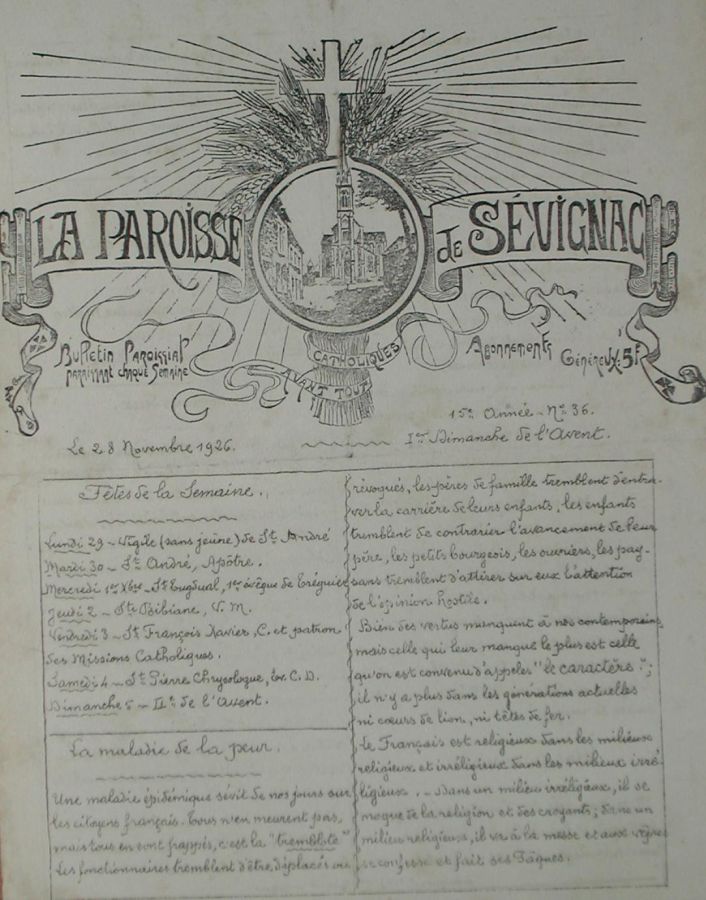 LA PAROISSE
de SÉVIGNAC
Bulletin Paroissial
paraissant chaque Semaine
CATHOLIQUES
AVANT TOUT
Abonnements
Généreux : 5f
15e Année - No 36.
Le 28 Novembre 1926.
Ier Dimanche de l'Avent.
Fêtes de la Semaine.
Lundi 29 - Vigile (sans jeûne) de St André
Mardi 30 - St André, Apôtre.
Mercredi 1er Xbre - St Tugdual, 1er évêque de Tréguier
Jeudi 2 - Ste Bibiane, V. M.
Vendredi 3 - St François Xavier, C. et patron
des Missions Catholiques.
Samedi 4 - St Pierre Chrysologue, Ev. C. D.
Dimanche 5 - IIe de l'Avent.
La maladie de la peur.
Une maladie épidémique sévit de nos jours sur
les citoyens français. Tous n'en meurent pas,
mais tous en sont frappés, c'est la "tremblote"
Les fonctionnaires tremblent d'être déplacés ou
révoqués, les pères de famille tremblent d'entra-
ver la carrière de leurs enfants, les enfants
tremblent de contrarier l'avancement de leur
père, les petits bourgeois, les ouvriers, les pay-
sans tremblent d'attirer sur eux l'attention
de l'opinion hostile.
Bien des vertus manquent à nos contemporains
mais celle qui leur manque le plus est celle
qu'on est convenu d'appeler "le caractère";
il n'y a plus dans les générations actuelles
ni cœurs de lion, ni têtes de fer.
Le Français est religieux dans les milieux
religieux et irréligieux dans les milieux irré-
ligieux. - Dans un milieu irréligieux, il se
moque de la religion et des croyants; dans un
milieu religieux, il va à la messe et aux vêpres
se confesse et fait ses Pâques.